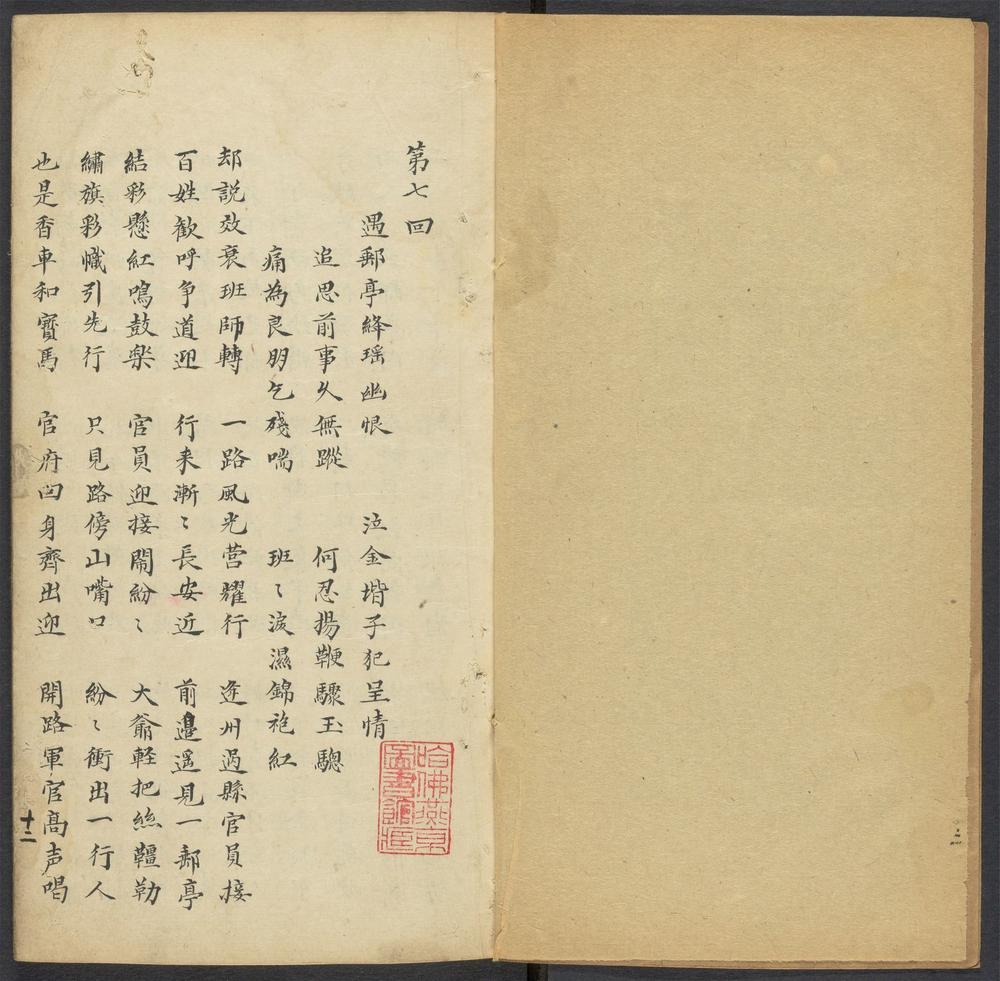 第七回
遇郵亭絳瑶幽恨　泣金堦子犯呈情
追思前事久無蹤　何忍揚鞭驟玉驄
痛為良朋乞殘喘　班〻淚濕錦袍紅
却説效衰班師轉　一路風光营耀行　逢州過縣官員接
百姓歓呼争道迎　行来漸〻長安近　前邉遥見一郵亭
結彩懸紅鳴鼓楽　官員迎接閙紛〻　大爺軽把絲韁勒
繡旗彩幟引先行　只見路傍山嘴口　紛〻衝出一行人
也是香車和寳馬　官府回身齊出迎　開路軍官髙声喝
十二
哈佛燕京
圖書館藏